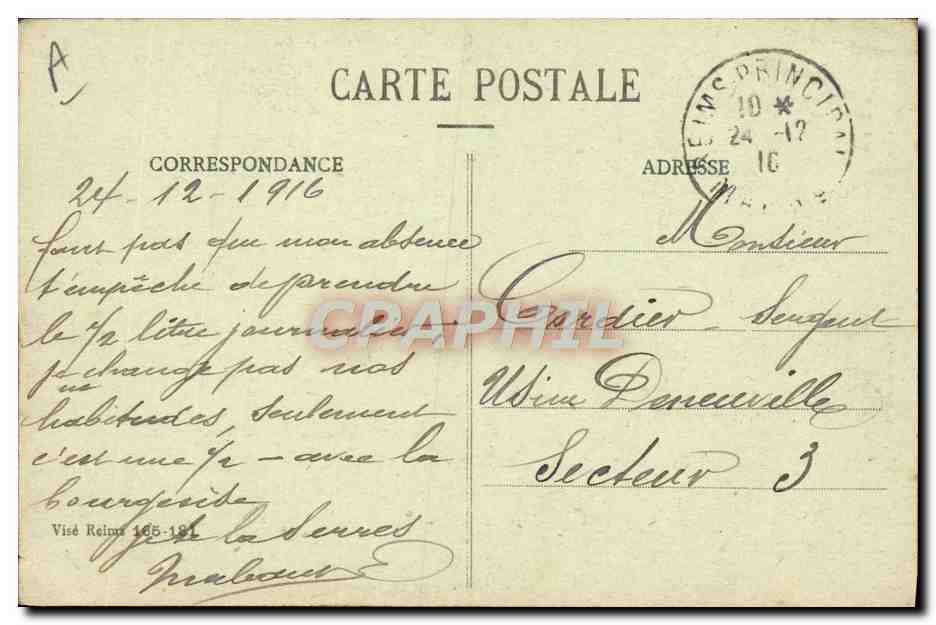 A
CARTE POSTALE
REIMS-PRINCIPAL
10 *
24 -12
16
CORRESPONDANCE
ADRESSE
24 - 12 - 1916
faut pas que mon absence
t'empêche de prendre
le 1/2 litre journalier,
je change pas nos
ne
habitudes, seulement
c'est une 1/2 - avec la
bourgeoise
Je te la serres
Monsieur
Cordier Sergent
Usine Deneuville
Secteur 3
Visé Reims 165-181
CRAPHIL